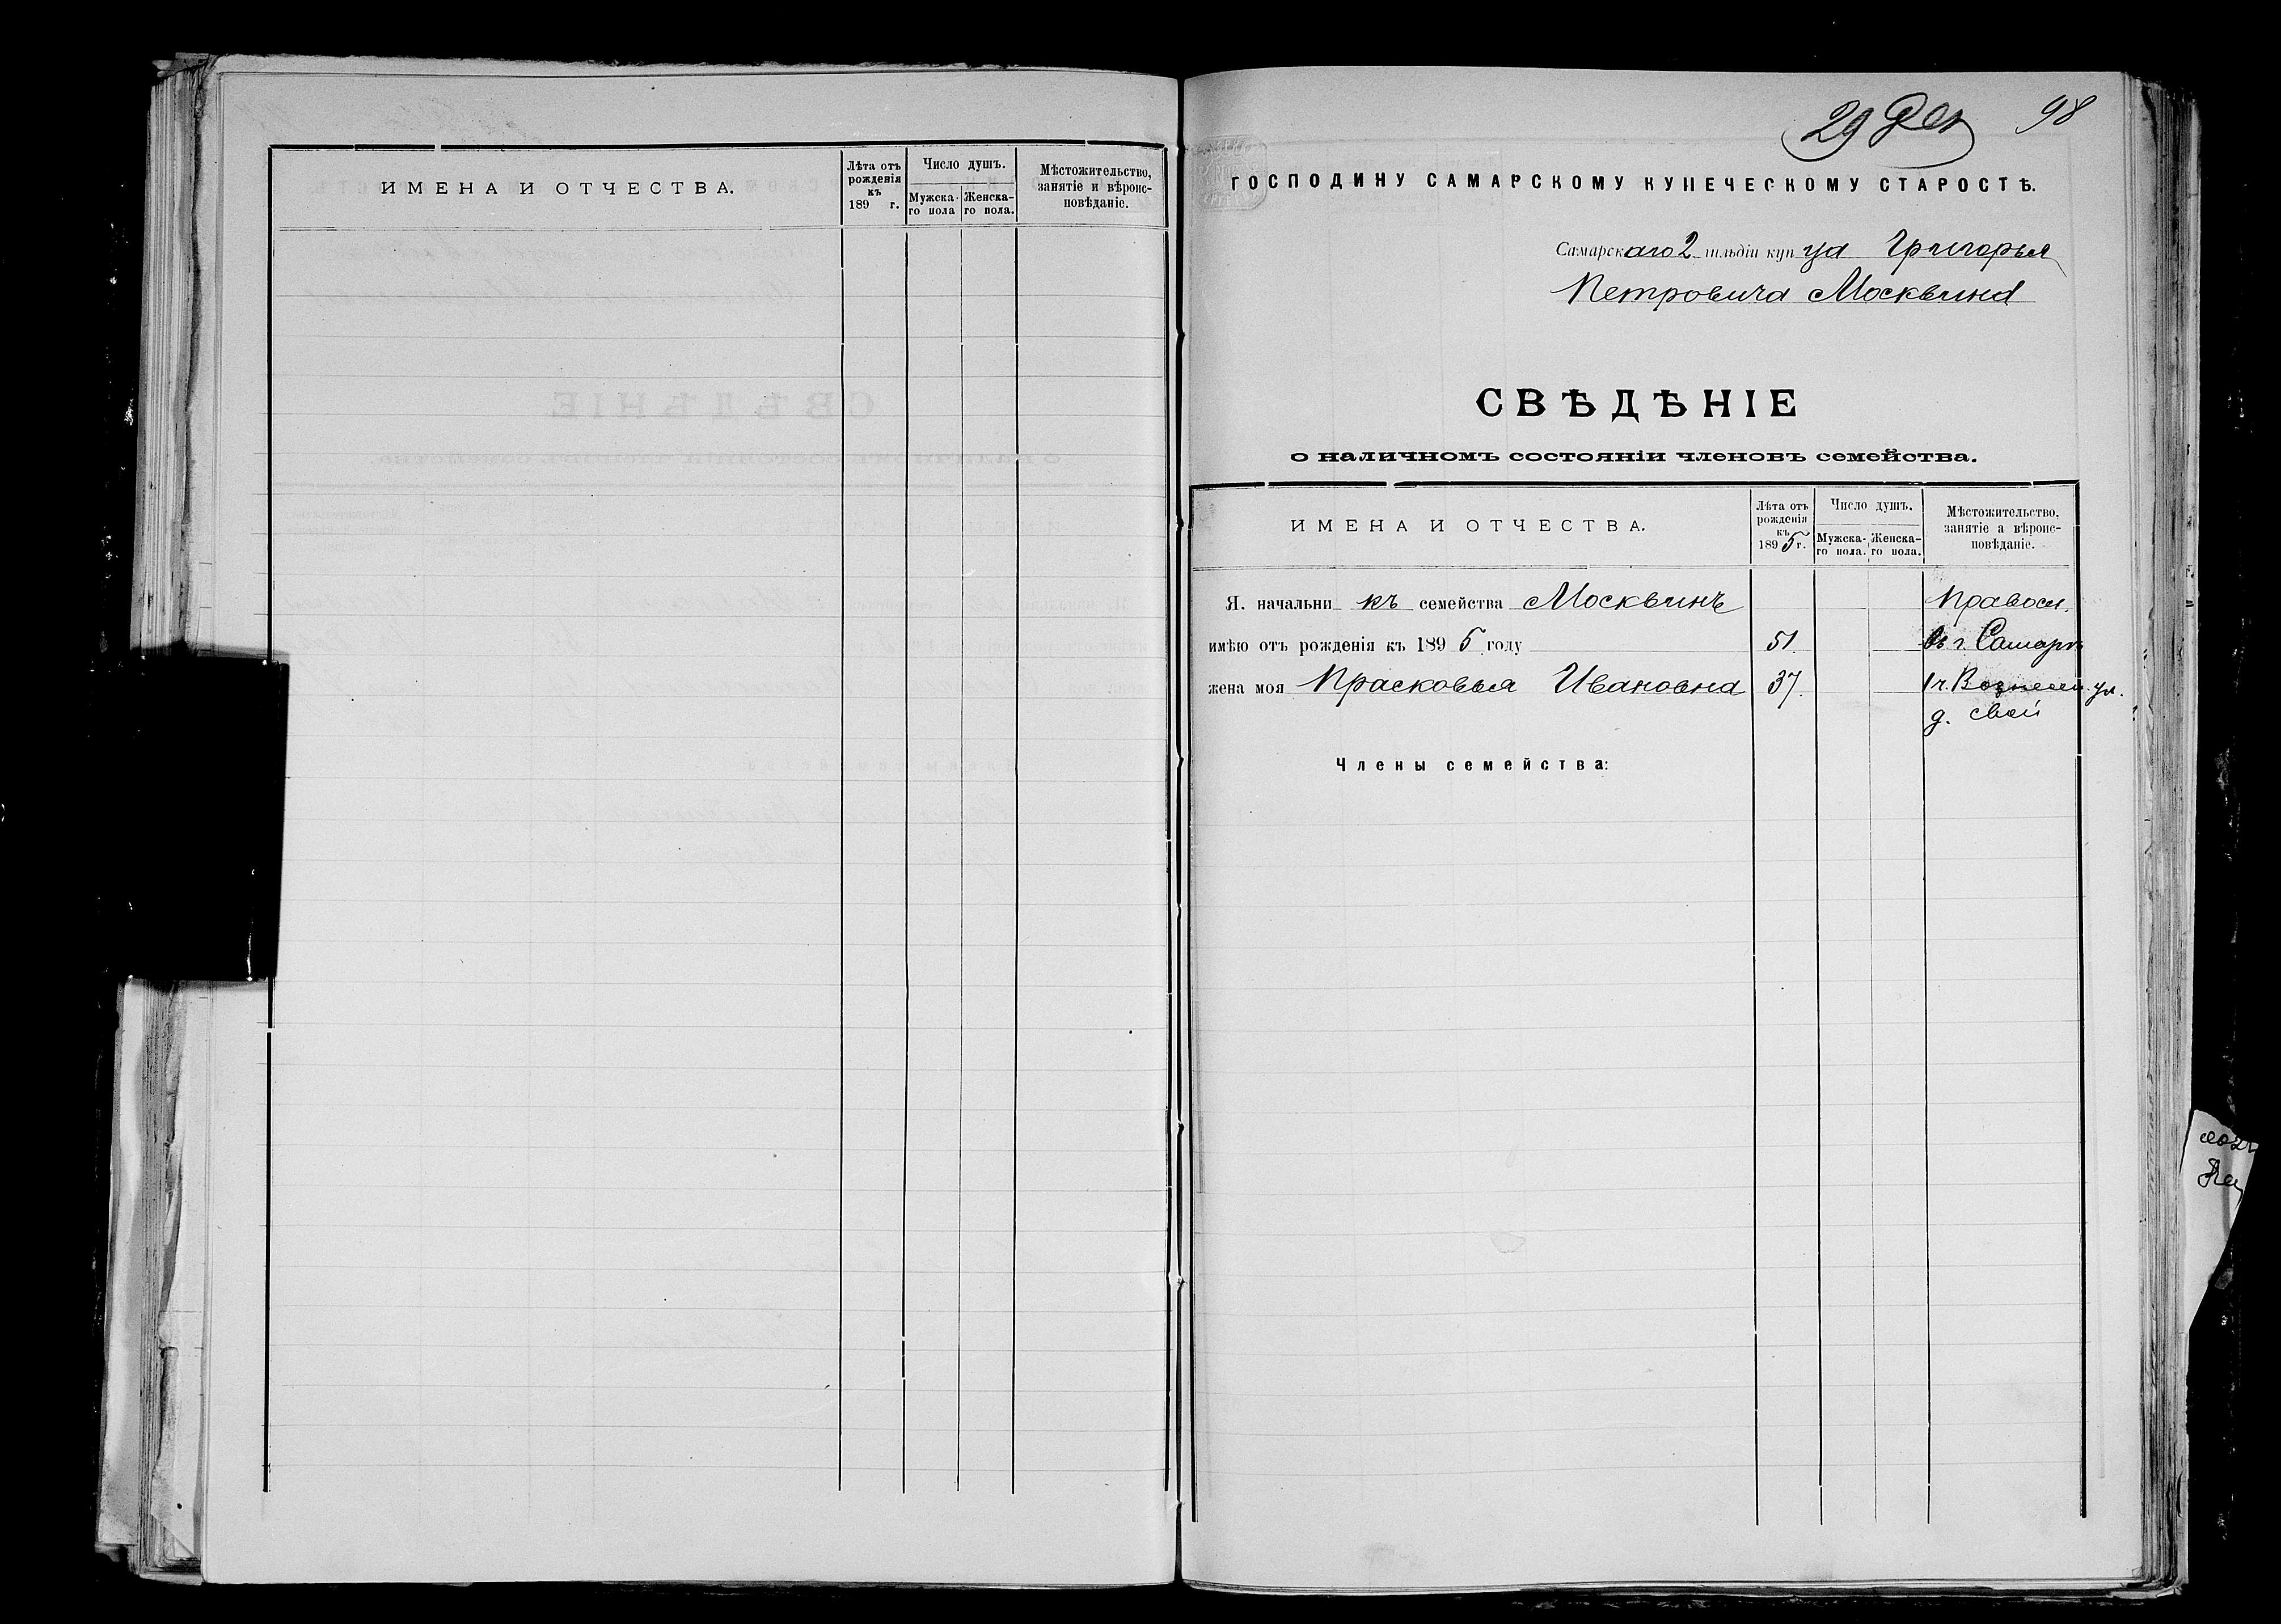 ИМЕНА И ОТЧЕСТВА.
Лѣта отъ рожденія къ 189 г.
Число душъ.
Мужска-го пола
Женска-го пола.
Мѣстожительство, занятіе и вѣроис-повѣданіе.
29 Дек 98
ГОСПОДИНУ САМАРСКОМУ КУПЕЧЕСКОМУ СТАРОСТѢ.
Самарскаго 2 гильдіи купца Григорья
Петровича Москвина
СВѢДѢНІЕ
о наличномъ состояніи членовъ семейства.
ИМЕНА И ОТЧЕСТВА.
Лѣта отъ рожденія къ 1895 г.
Число душъ.
Мужска-го пола.
Женска-го пола.
Мѣстожительство, занятіе а вѣроис-повѣданіе.
Я. начальникъ семейства Москвинъ Правосл.
имѣю отъ рожденія къ 1895 году 51. въ г. Самарѣ
жена моя Прасковья Ивановна 37. 1 ч. Вознесен. ул.
д. свой
Члены семейства: